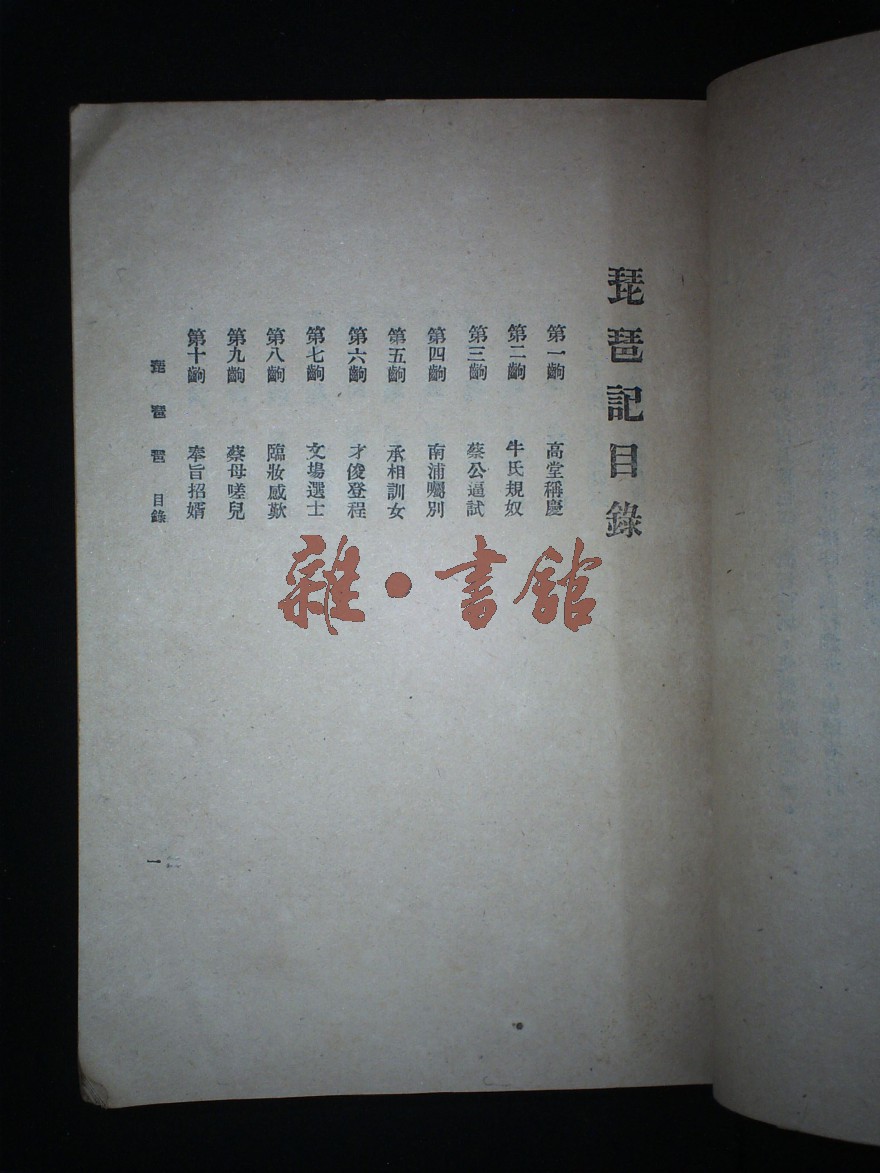 琵琶記目錄
第一齣 高堂稱慶
第二齣 牛氏規奴
第三齣 蔡公逼試
第四齣 南浦囑別
第五齣 承相訓女
第六齣 才俊登程
第七齣 文場選士
第八齣 臨妝感歎
第九齣 蔡母嗟兒
第十齣 奉旨招婿
目錄
一
雜·書館